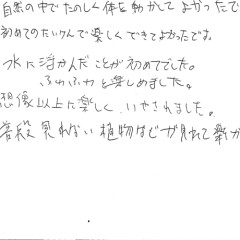 自然の中でたのしく体を動かしてよかったで
初めてのたいけんで楽しくできてよかったです。
水に浮かんだことが初めてでした。
ふわふわと楽しめました。
想像以上に楽しく、いやされました。
普段見れない植物などが見れて楽しか